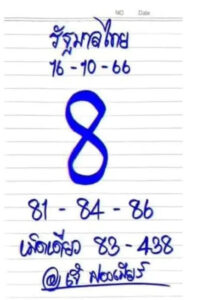 NO. Date
รัฐบาลไทย
16 - 10 - 66
8
81 - 84 - 86
เม็ดเดียว 83 - 438
@เจ๊ ฟองเบียร์